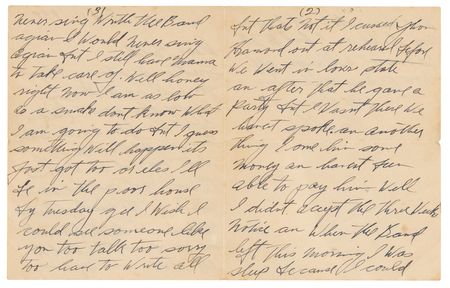 (2)
but that Not it I cussed Jhon
Hamond out at rehearsel before
We Went in lowes state
an after that he gave a
Party but I Wasnt there We
havent spoke an another
thing I owe him some
money an havent been
able to pay him. Well
I didnt accept the three Weeks
Notice an When the Band
left this morning I Was
sleep because I could
(3)
never sing With the Band
again I Would Never sing
again but I still have Mama
to take care of. Well honey
right Now I am as low
as a snake dont know What
I am going to do but I guess
something Will happen its
just got too or eles I'll
be in the poor house
by tuesday gee I Wish I
could see someone like
you too talk too sorry
too have to Write all